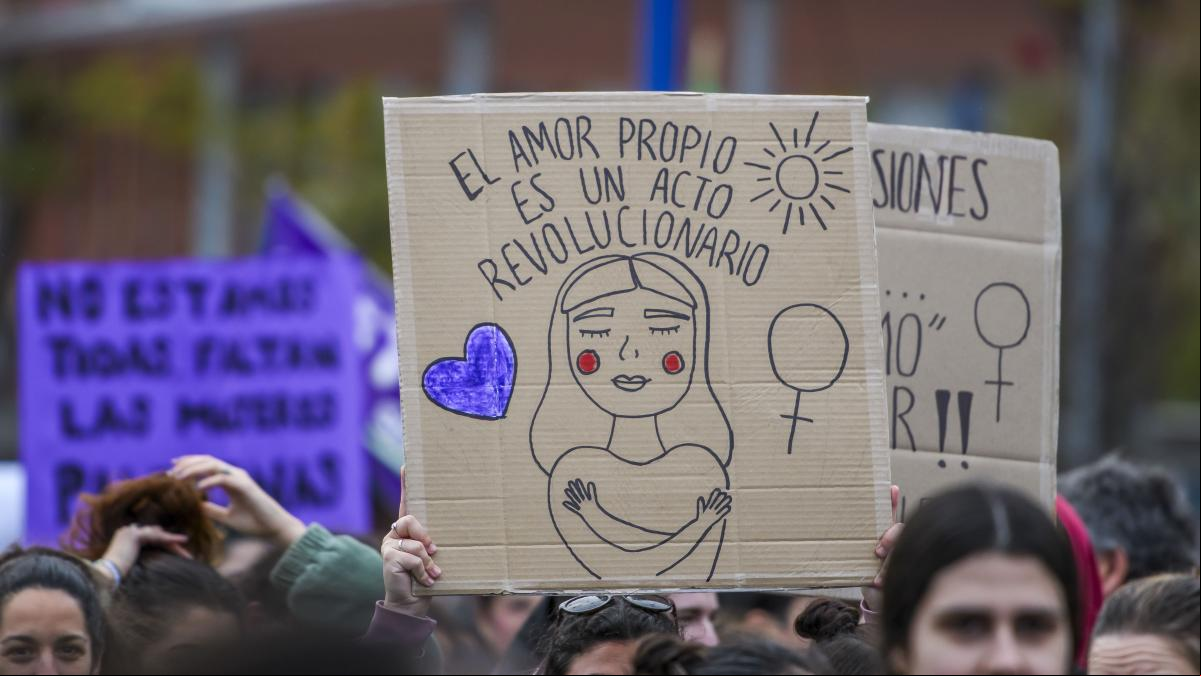 EL AMOR PROPIO
ES UN ACTO
REVOLUCIONARIO
NO ESTAMOS
TODAS FALTAN
LAS MUJERES
SIONES
...
MO"
R!!